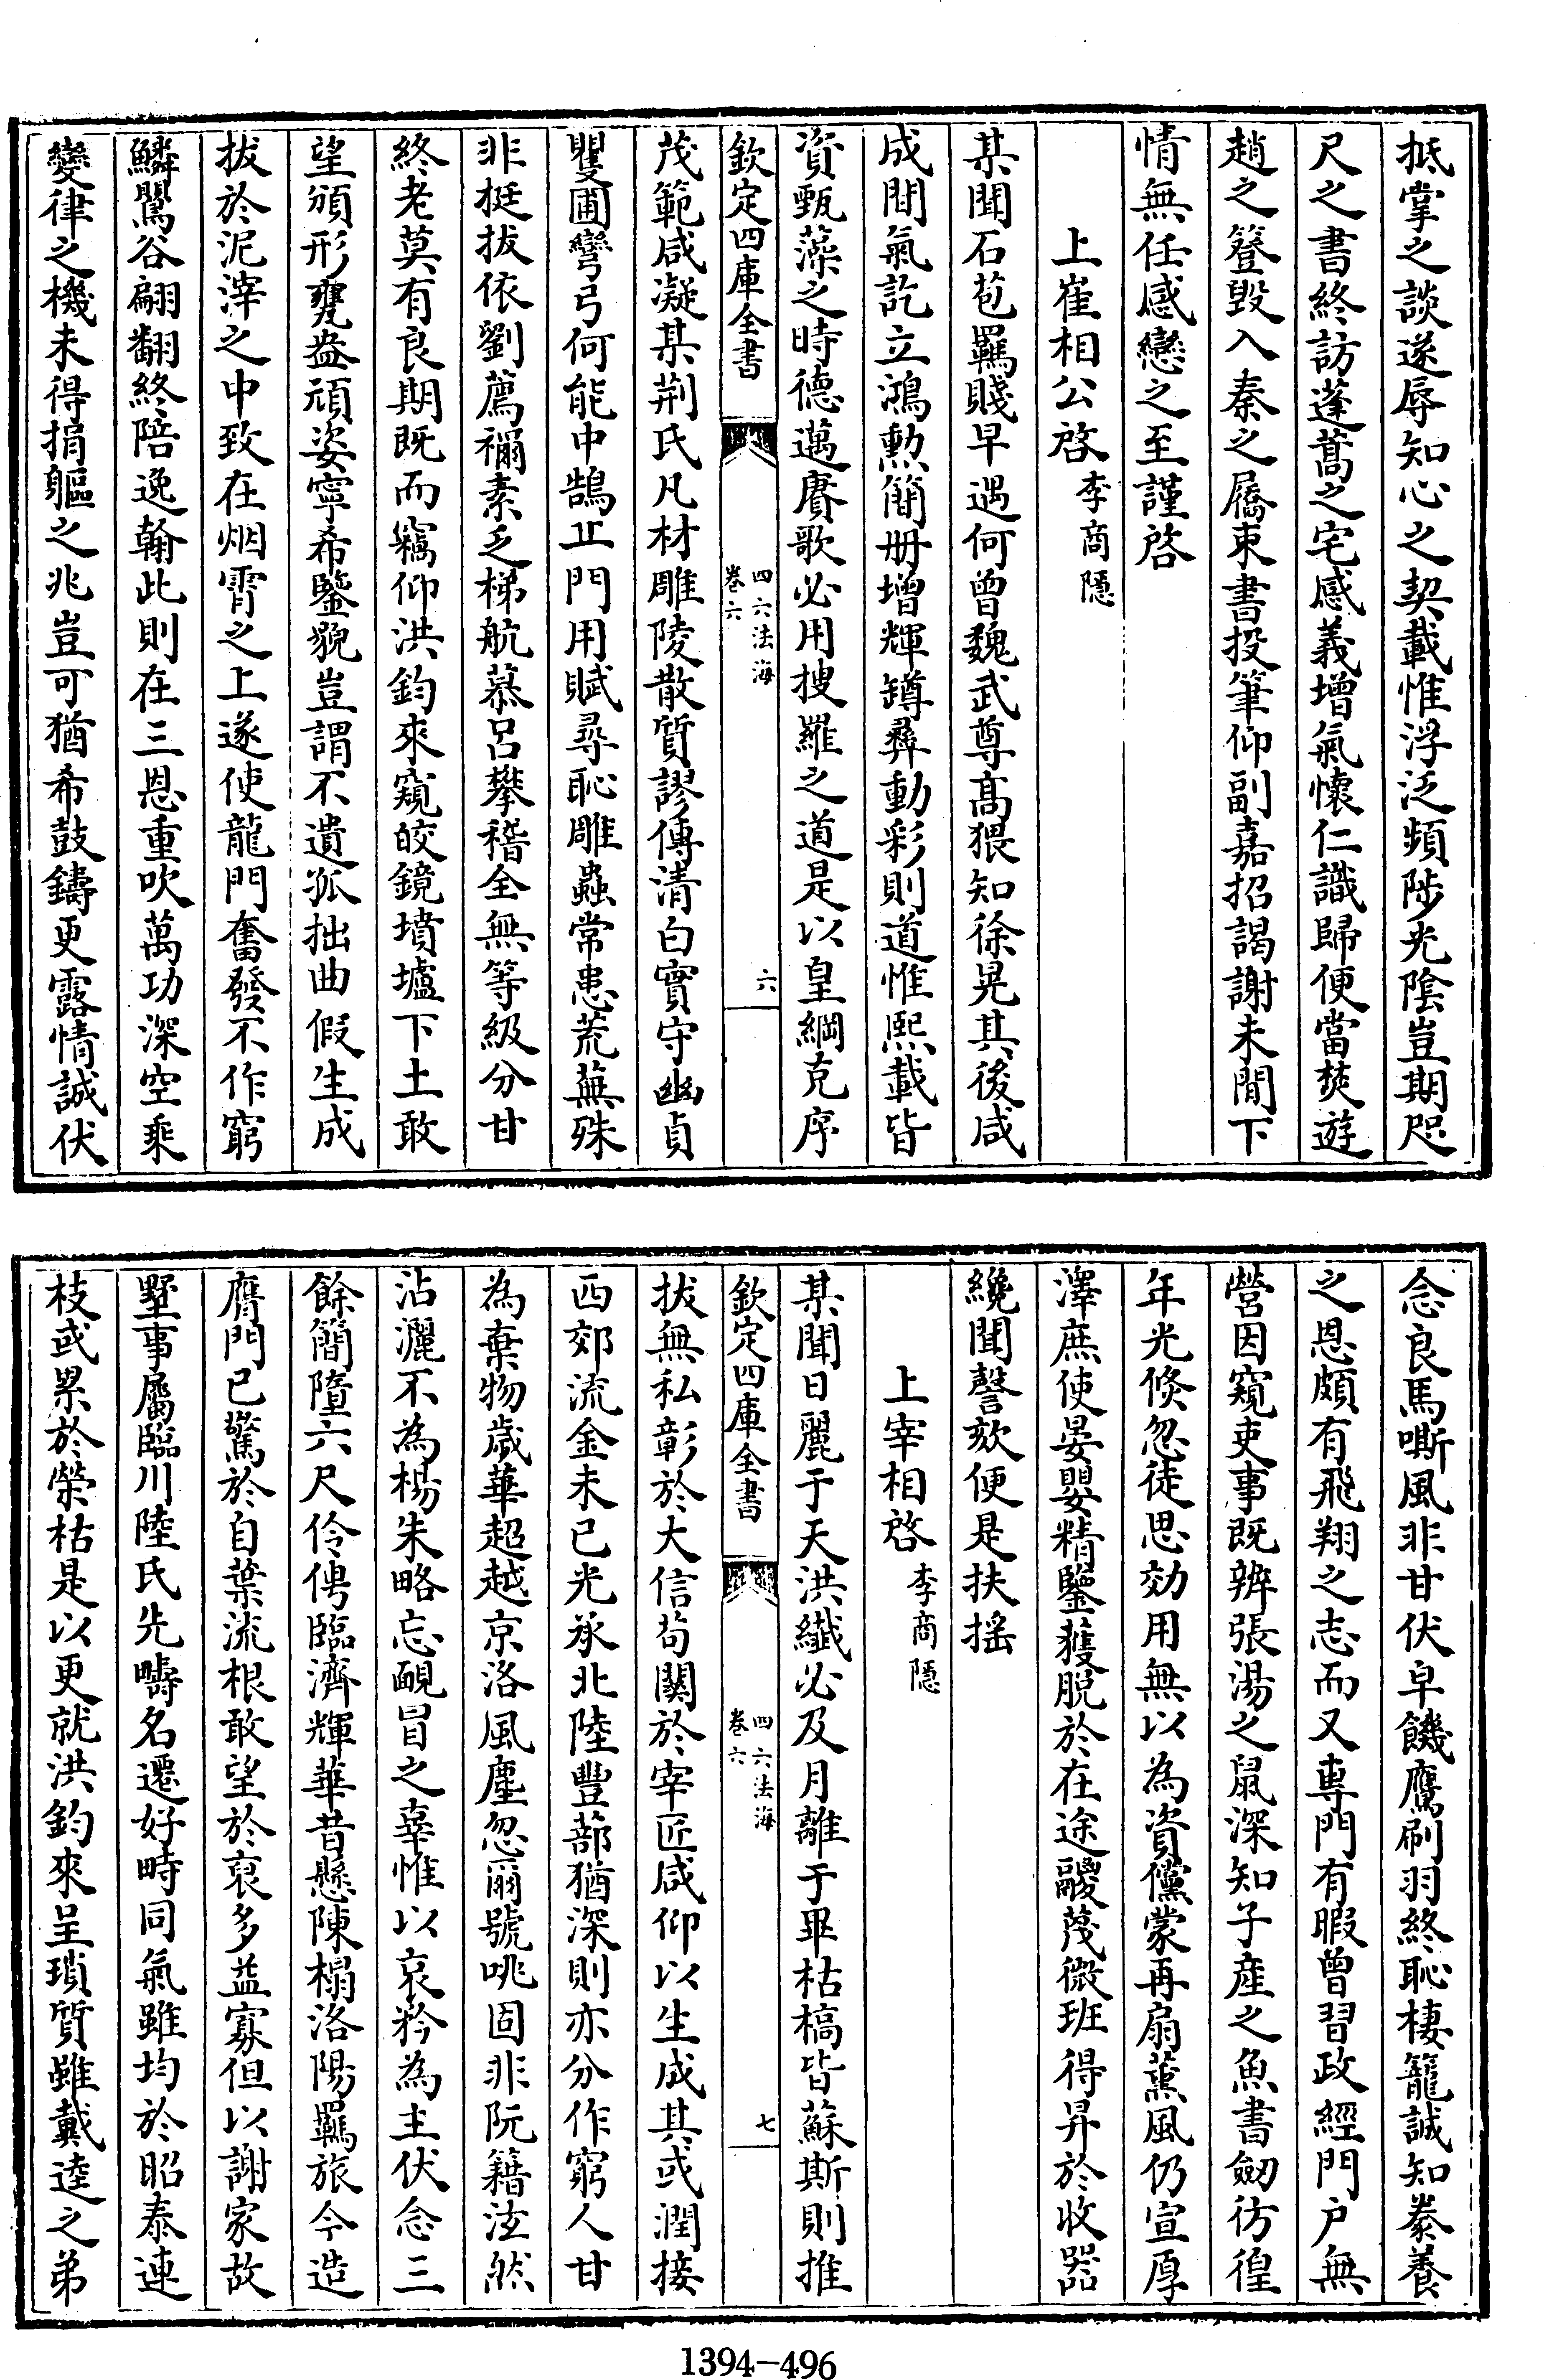 抵掌之談遂辱知心之契載惟浮泛頻陟光陰豈期咫
尺之書終訪蓬蒿之宅感義增氣懷仁識歸便當焚遊
趙之簦毀入秦之屩束書投筆仰副嘉招謁謝未間下
情無任感戀之至謹啓
上崔相公啓李商隱
某聞石苞羈賤早遇何曾魏武尊高猥知徐晃其後咸
成間氣訖立鴻勲簡册增輝罇彛動彩則道惟熙載皆
資甄藻之時德邁賡歌必用搜羅之道是以皇綱克序
欽定四庫全書
四六法海
卷六
六
茂範咸凝某荆氏凡材雕陵散質謬傳清白實守幽貞
瞿圃彎弓何能中鵠丘門用賦尋恥雕蟲常患荒蕪殊
非挺拔依劉薦禰素乏梯航慕呂攀嵇全無等級分甘
終老莫有良期既而竊仰洪鈞來窺皎鏡墳壚下土敢
望頒形甕盎頑姿寜希鑒貌豈謂不遺孤拙曲假生成
拔於泥滓之中致在烟霄之上遂使龍門奮發不作窮
鱗鸎谷翩翻終陪逸翰此則在三恩重吹萬功深空乘
變律之機未得捐軀之兆豈可猶希鼓鑄更露情誠伏
念良馬嘶風非甘伏皁饑鷹刷羽終恥棲籠誠知豢養
之恩頗有飛翔之志而又專門有暇曾習政經門户無
營因窺吏事既辨張湯之鼠深知子産之魚書劒彷徨
年光倏忽徒思効用無以為資儻蒙再扇薫風仍宣厚
澤庶使晏嬰精鑒獲脱於在途鬷蔑微班得昇於收器
纔聞謦欬便是扶揺
上宰相啓李商隱
某聞日麗于天洪纎必及月離于畢枯槁皆蘇斯則推
欽定四庫全書
四六法海
卷六
七
拔無私彰於大信苟關於宰匠咸仰以生成其或潤接
西郊流金未已光承北陸豐蔀猶深則亦分作窮人甘
為棄物歲華超越京洛風塵忽爾號咷固非阮籍泫然
沾灑不為楊朱略忘靦冒之辜惟以哀矜為主伏念三
餘簡墮六尺伶俜臨濟輝華昔懸陳榻洛陽羈旅今造
膺門已驚於自葉流根敢望於裒多益寡但以謝家故
墅事屬臨川陸氏先疇名遷好畤同氣雖均於昭泰連
枝或累於榮枯是以更就洪鈞來呈瑣質雖戴逵之弟
1394-496